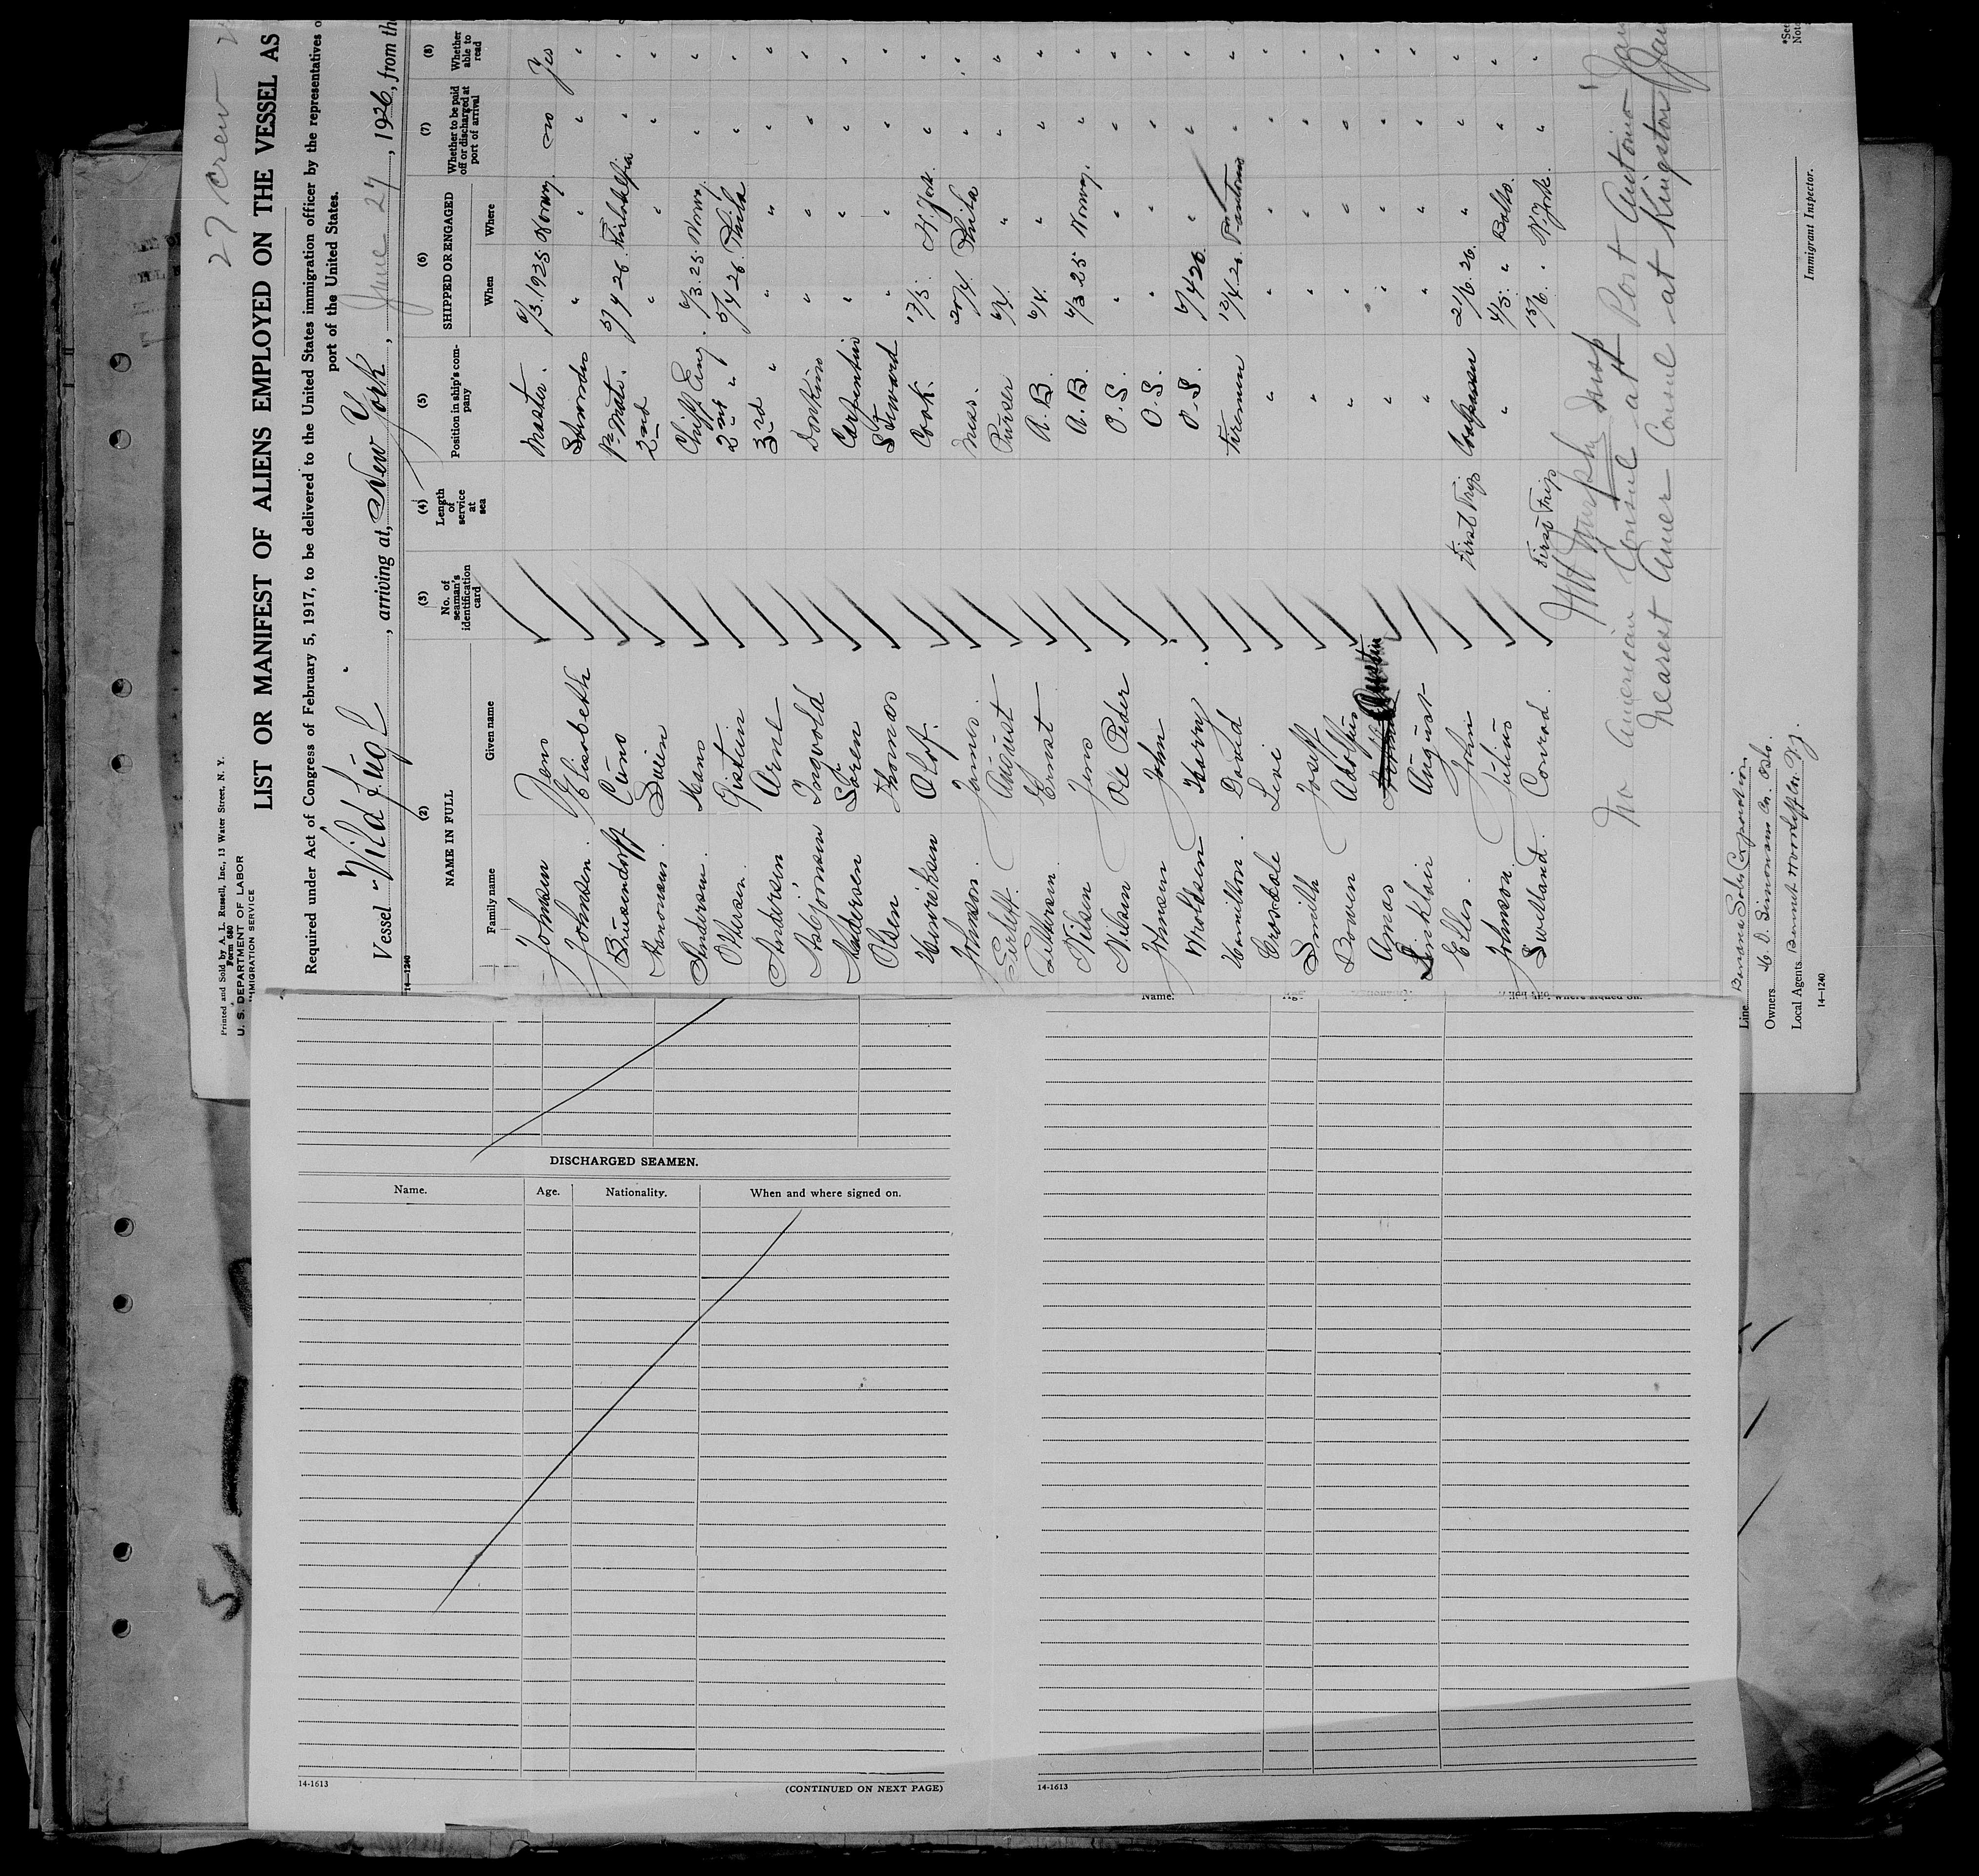 27 Crew
Printed and Sold by A. L. Russell, Inc., 13 Water Street, N. Y.
Form 680
U. S. DEPARTMENT OF LABOR
IMMIGRATION SERVICE
LIST OR MANIFEST OF ALIENS EMPLOYED ON THE VESSEL AS
Required under Act of Congress of February 5, 1917, to be delivered to the United States immigration officer by the representatives o
port of the United States.
Vessel "Vildfugl", arriving at, New York, June 27, 1926, from the
14—1240
(2) (3) (4) (5) (6) (7) (8)
NAME IN FULL No. of seaman's identification card Length of service at sea Position in ship's company SHIPPED OR ENGAGED Whether to be paid off or discharged at port of arrival Whether able to read
Family name Given name When Where
Johnsen Jens Master. 6/3.1925 Norway. no Yes
Johnsen. Elisabeth " " " "
Cuno Mate. 5/4 26. Philadelphia " "
Svein 2nd " " " "
Andersen. Hans Chiff Eng. 6/3.25. Norway. " "
Othersen. Øistein 2nd " 5/4 26. Phila " "
Andersen Arne 3rd " " " " "
Asbjörnsen Ingvold Donkim " " " "
Madersen Sören Carpenter " " " "
Olsen Thomas Steward " " " "
Henriksen Olof. Cook. 17/5. N. York. " "
Johnson. James. Mess. 20/4. Phila " "
August Purser 6/4. " " "
Ernst A. B. 6/4. " " "
Nilsen Jens A. B. 6/3 25 Norway. " "
Nilsen Ole Peder O. S. " " " "
Johnsen John O. S. " " " "
Harry O. S. 6/4 26. " " "
Hamilton. David Firemen 12/4.26. " "
Crosdale Levi " " " " "
Smith Joseff " " " " "
Bowen Adolphus " " " " "
Amos Austin " " " " "
Sinklair August " " " " "
Elles. John First Trip Coalpasser 21/6.26. " " "
Johnson. Julius " 4/5. " Balto. " "
Swetland. Conrad. First Trip 15/6. " N. York. " "
Murphy Insp
No American Consul at Port Antonio Jam
Nearest Amer Consul at Kingston Jam
*See
Not
Immigrant Inspector.
Line Banana Sales Corporation
Owners
Local Agents
14—1240
DISCHARGED SEAMEN.
Name. Age. Nationality. When and where signed on.
14-1613 (CONTINUED ON NEXT PAGE)
Name.
14-1613